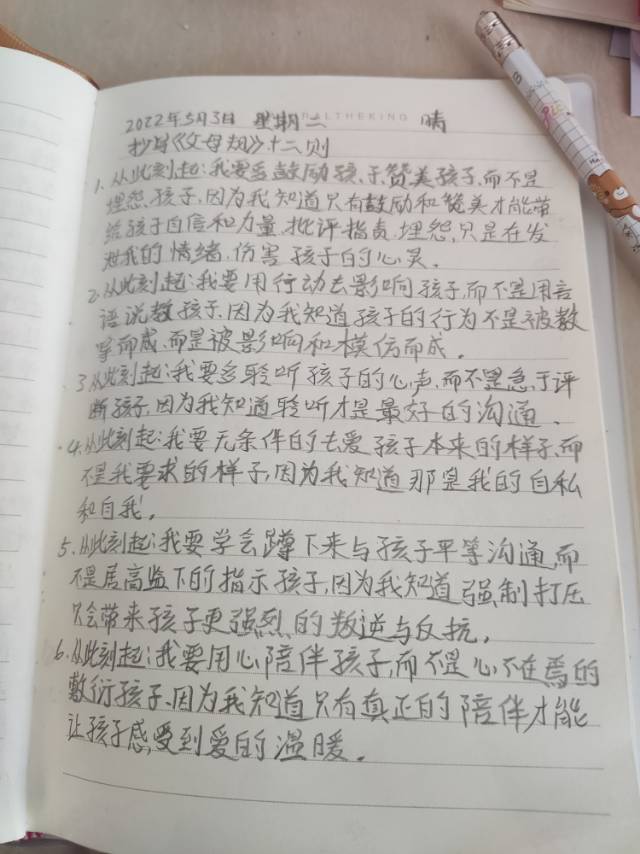 2022年5月3日 星期二 THEKING 晴
抄写《父母规》十二则
1、从此刻起:我要多鼓励孩子、赞美孩子,而不是
埋怨孩子,因为我知道只有鼓励和赞美才能带
给孩子自信和力量,批评指责、埋怨,只是在发
泄我的情绪,伤害孩子的心灵。
2、从此刻起:我要用行动去影响孩子,而不是用言
语说教孩子,因为我知道孩子的行为不是被教
导而成,而是被影响和模仿而成。
3从此刻起:我要多聆听孩子的心声,而不是急于评
断孩子,因为我知道聆听才是最好的沟通。
4.从此刻起:我要无条件的去爱孩子本来的样子,而
不是我要求的样子,因为我知道那是我的自私
和自我。
5.从此刻起:我要学会蹲下来与孩子平等沟通,而
不是居高监下的指示孩子,因为我知道强制打压
只会带来孩子更强烈的叛逆与反抗,
6.从此刻起:我要用心陪伴孩子,而不是心不在焉的
敷衍孩子,因为我知道只有真正的陪伴才能
让孩子感受到爱的温暖。